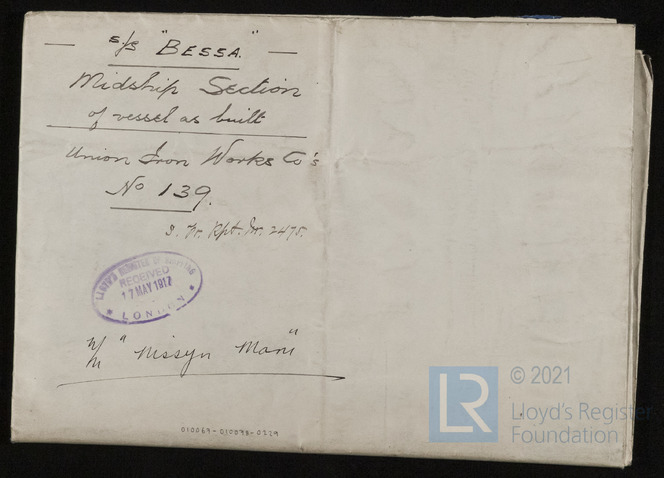 s/s "BESSA."
Midship Section
of vessel as built
Union Iron Works Co's
No 139.
Rpt. No. 2475.
LLOYD'S REGISTER OF SHIPPING
RECEIVED
17 MAY 1917
LONDON
"Nissyn Maru"
010069-010098-0229
LR
© 2021
Lloyd's Register
Foundation